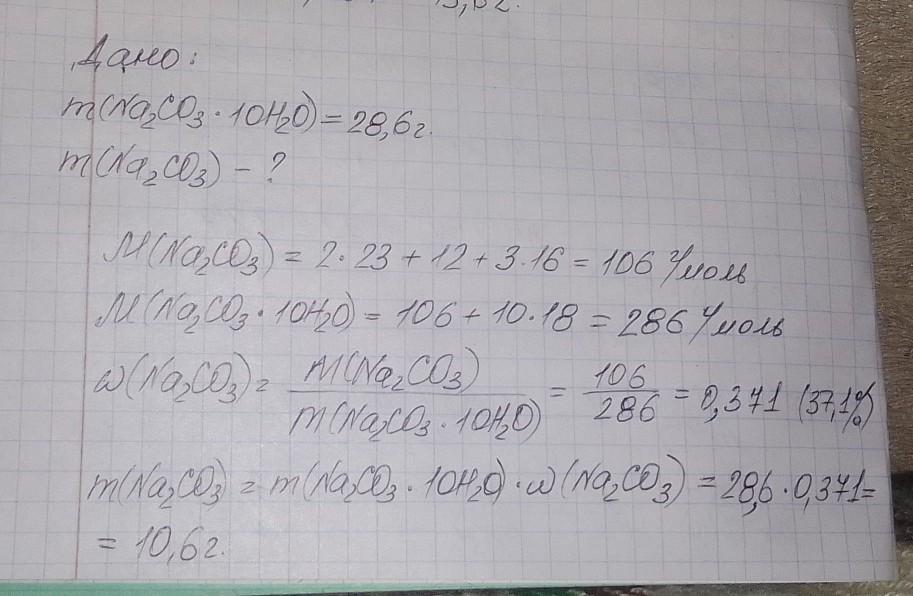 Дано:
m(Na₂CO₃ · 10H₂O) = 28,6г.
m(Na₂CO₃) - ?
M(Na₂CO₃) = 2·23 + 12 + 3·16 = 106 г/моль
M(Na₂CO₃ · 10H₂O) = 106 + 10·18 = 286 г/моль
ω(Na₂CO₃) = M(Na₂CO₃) / m(Na₂CO₃ · 10H₂O) = 106 / 286 = 0,371 (37,1%)
m(Na₂CO₃) = m(Na₂CO₃ · 10H₂O) · ω(Na₂CO₃) = 28,6 · 0,371 =
= 10,6г.